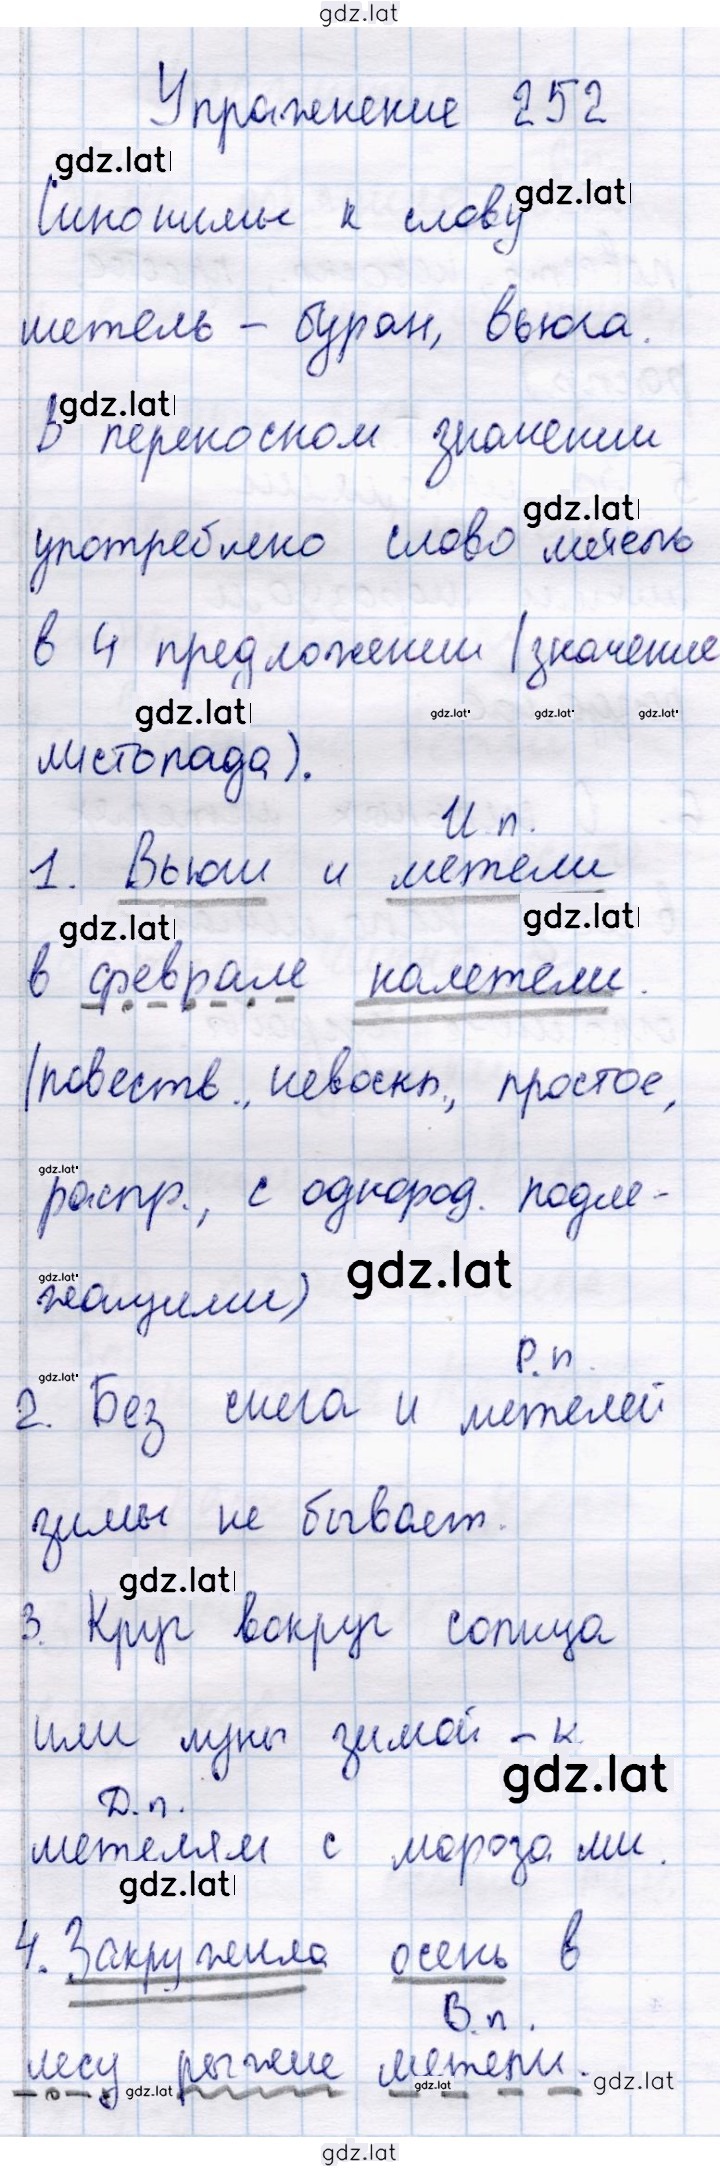 gdz.lat
Упражнение 252
gdz.lat
gdz.lat
Синонимы к слову
метель - буран, вьюга.
gdz.lat
В переносном значении
gdz.lat
употреблено слово метель
в 4 предложении (значение
gdz.lat gdz.lat gdz.lat gdz.lat
листопада).
И.п.
1. Вьюги и метели
gdz.lat gdz.lat
в феврале налетели.
(повеств., невоскл., простое,
gdz.lat
распр., с однород. подле-
gdz.lat gdz.lat
жащими)
Р.п.
gdz.lat
2. Без снега и метелей
зимы не бывает.
gdz.lat
3. Круг вокруг солнца
или луны зимой - к
gdz.lat
Д.п.
метелям с морозами.
gdz.lat
4. Закружила осень в
В.п.
лесу рыжие метели.
gdz.lat gdz.lat gdz.lat
gdz.lat